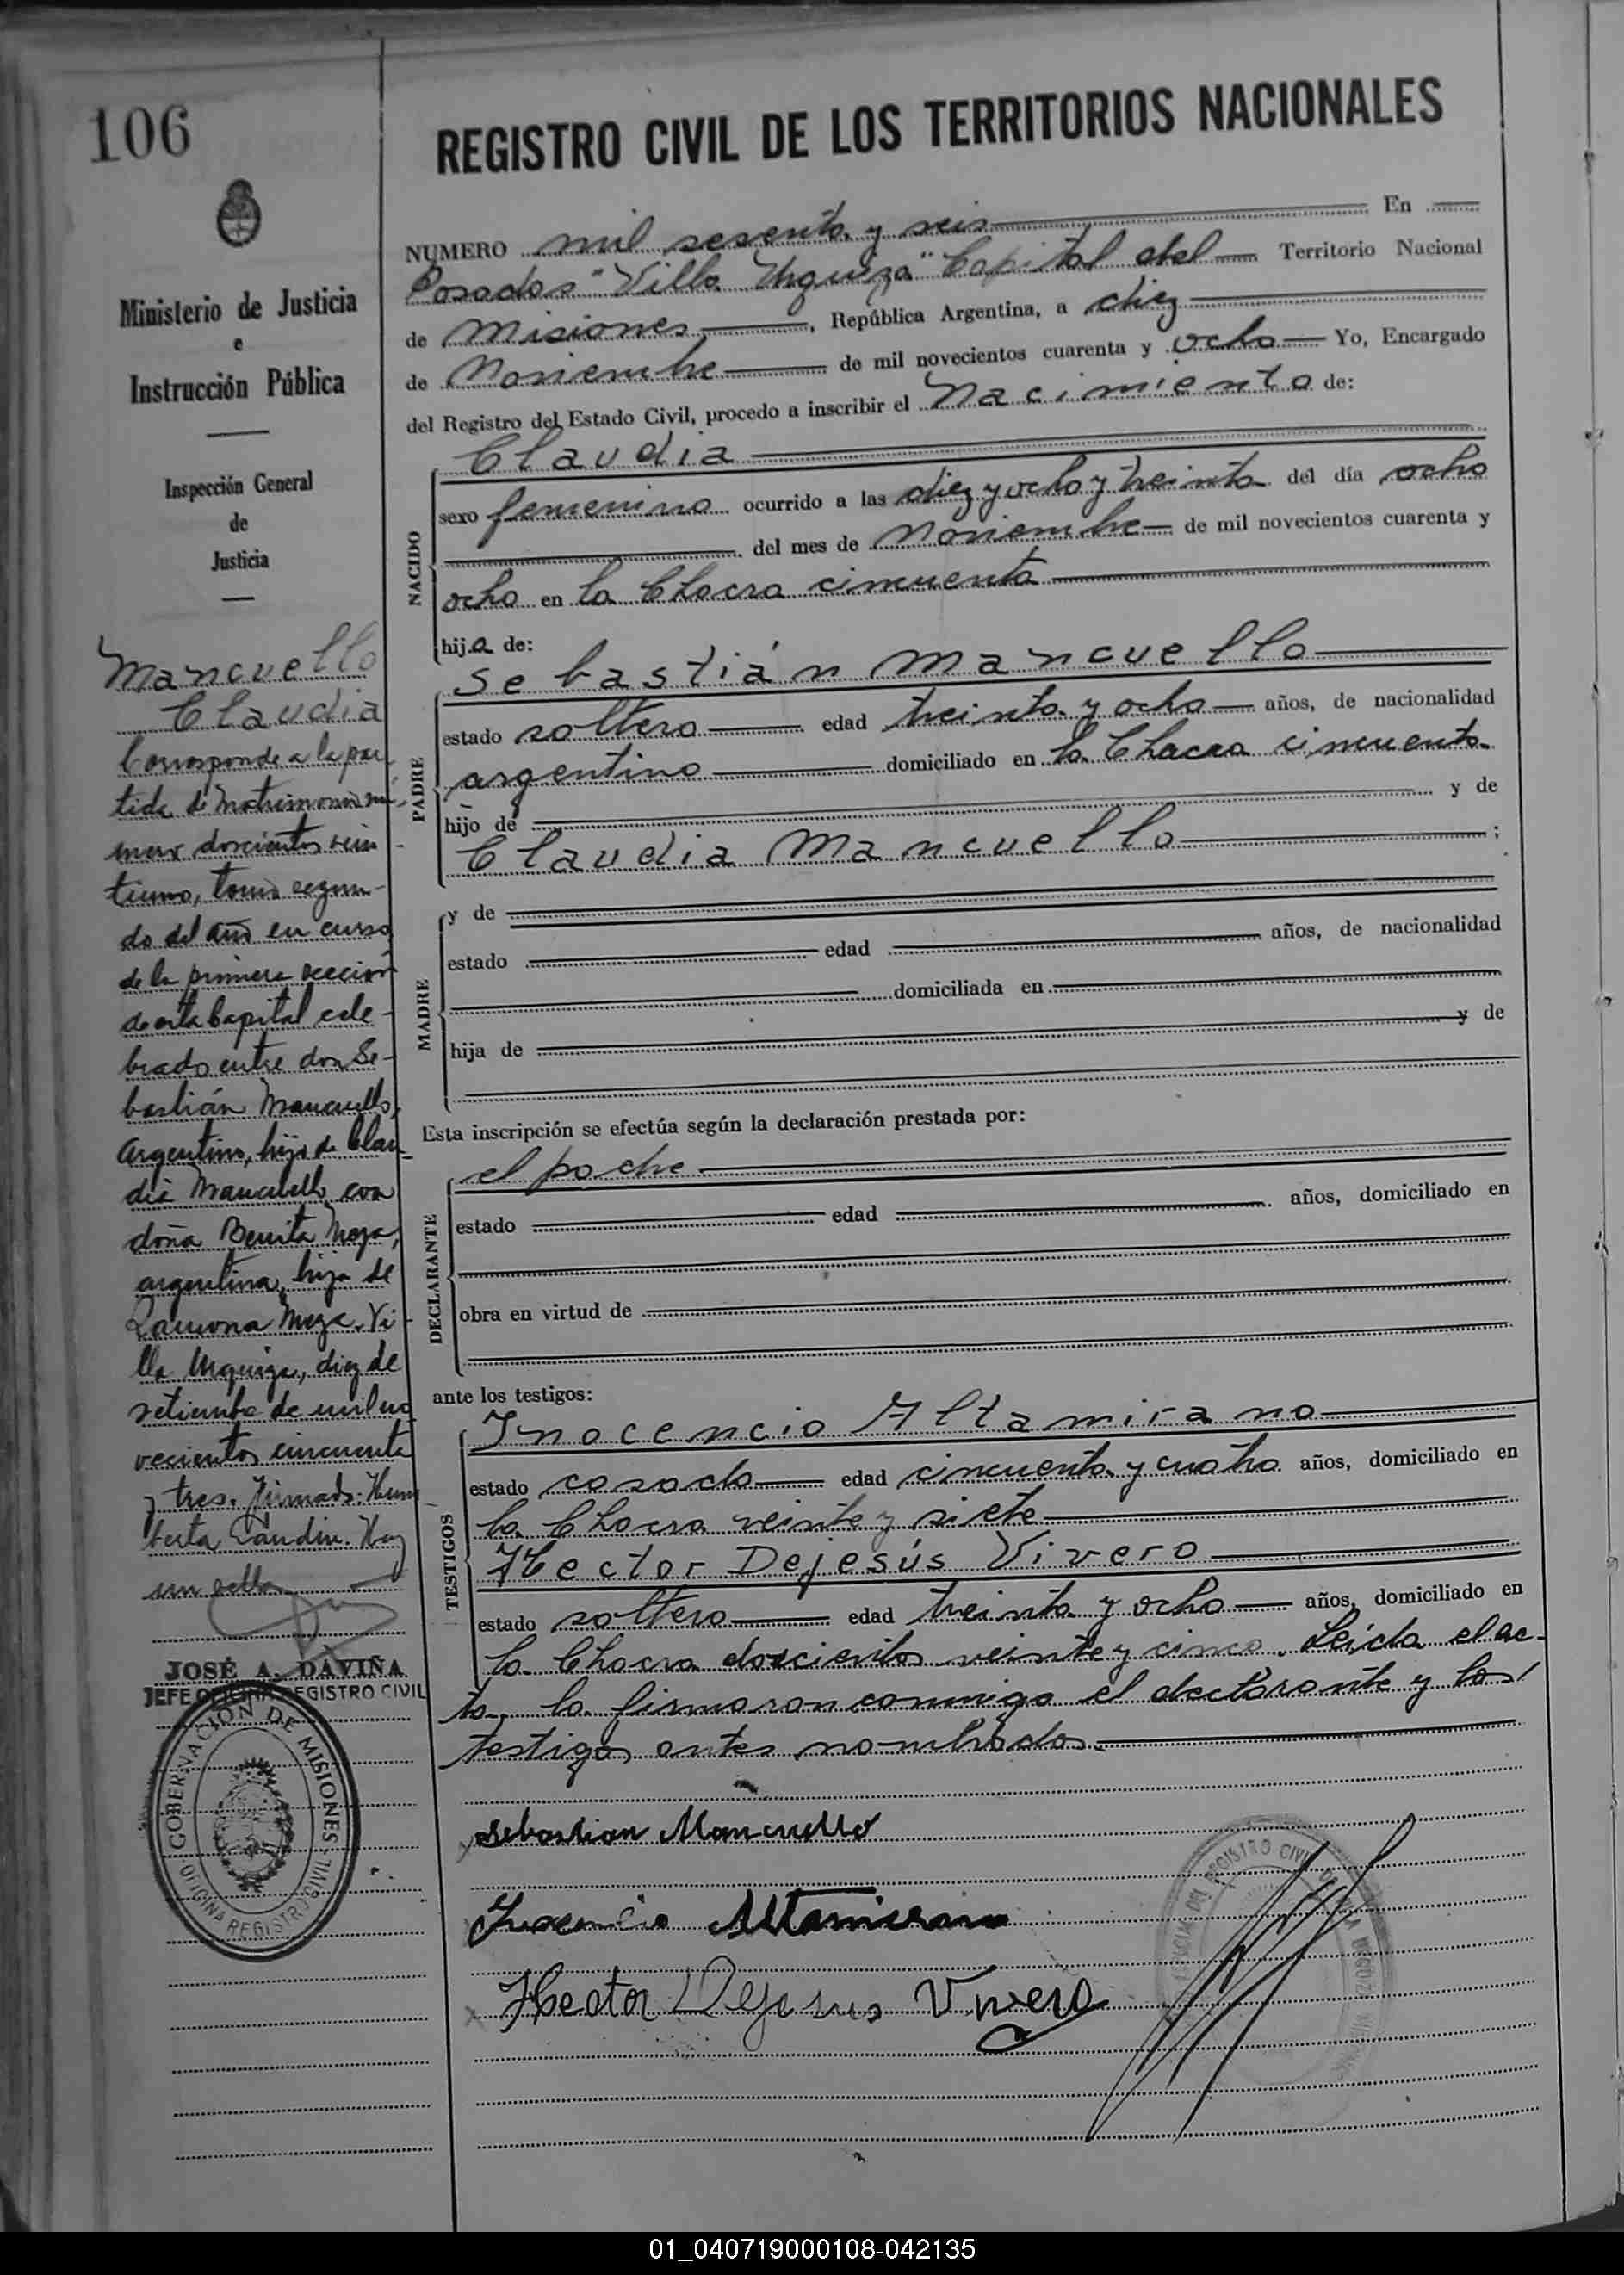 106
REGISTRO CIVIL DE LOS TERRITORIOS NACIONALES
Ministerio de Justicia
e
Instrucción Pública
Inspección General
de
Justicia
Mancuello
Claudia
Corresponde a la par
tida de Matrimonio nú
mero doscientos vein
tiuno, tomo segun-
do del año en curso
de la primera sección
de esta Capital cele-
brado entre don Se-
bastián Mancuello,
argentino, hijo de Clau
dia Mancuello con
doña Benita Meza,
argentina, hija de
Ramona Meza. Vi-
lla Urquiza, diez de
setiembre de mil no
vecientos cincuenta
y tres. Firmado: Hum
berto Hay
un sello
JOSÉ A. DAVIÑA
JEFE OFICINA REGISTRO CIVIL
GOBERNACIÓN DE MISIONES
OFICINA REGISTRO CIVIL
NUMERO mil sesenta y seis En
Posadas "Villa Urquiza" Capital del Territorio Nacional
de Misiones, República Argentina, a diez
de Noviembre de mil novecientos cuarenta y ocho Yo, Encargado
del Registro del Estado Civil, procedo a inscribir el Nacimiento de:
NACIDO
Claudia
sexo femenino ocurrido a las diez y ocho y treinta del día ocho
del mes de Noviembre de mil novecientos cuarenta y
ocho en la Chacra cincuenta
hija de:
PADRE
Sebastián Mancuello
estado soltero edad treinta y ocho años, de nacionalidad
argentino domiciliado en la Chacra cincuenta
hijo de y de
Claudia Mancuello ;
MADRE
y de
estado edad años, de nacionalidad
domiciliada en
hija de y de
Esta inscripción se efectúa según la declaración prestada por:
DECLARANTE
el padre
estado edad años, domiciliado en
obra en virtud de
ante los testigos:
TESTIGOS
Inocencio Altamirano
estado casado edad cincuenta y cuatro años, domiciliado en
la Chacra veinte y siete
Hector Dejesús Vivero
estado soltero edad treinta y ocho años, domiciliado en
la Chacra doscientos veinte y cinco. Leída el ac-
ta, la firmaron conmigo el declarante y los
testigos antes nombrados.
Sebastian Mancuello
Inocencio Altamirano
Hector Dejesus Vivero
01_040719000108-042135